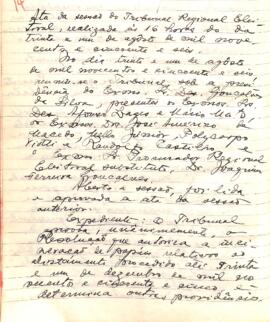 14
Ata da sessão do Tribunal Regional Elei-
toral, realizada às 16 horas do dia
trinta e um de agosto de mil nove
centos e cincoenta e seis.
No dia trinta e um de agosto
de mil novecentos e cincoenta e seis
reuniu-se o Tribunal sob a presi-
dência do Exmo. Sr. Des. Gonçalves
da Silva, presentes os Exmos. Srs.
Des. Afonso Lages e
e os Exmos. Drs. José Americo de
Macedo, Mello Junior, Polycarpo
Viotti e Randolfo Castilho, e
o Exmo. Sr. Procurador Regional
Eleitoral substituto, Dr. Joaquim
Ferreira Gonçalves.
Aberta a sessão, foi lida
e aprovada a ata da sessão
anterior.
Expediente: O Tribunal
aprova, unanimemente, a
Resolução que autoriza a inci-
neração de papeis relativos ao
alistamento procedido até trinta
e um de dezembro de mil no-
vecentos e cincoenta e cinco, e
determina outras providências.